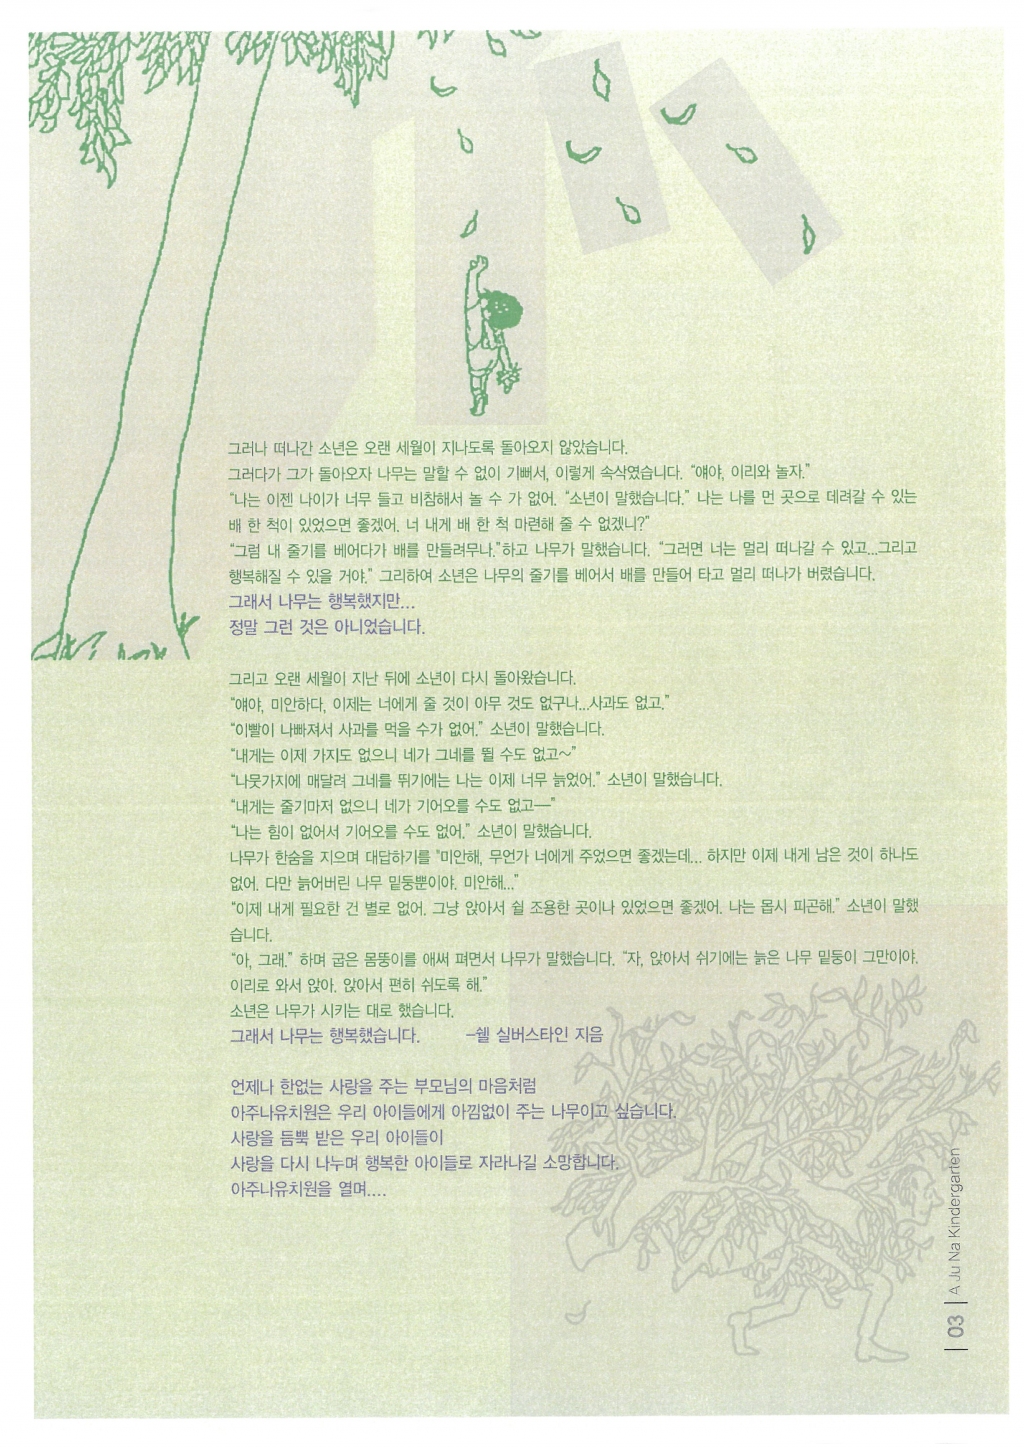 그러나 떠나간 소년은 오랜 세월이 지나도록 돌아오지 않았습니다.
그러다가 그가 돌아오자 나무는 말할 수 없이 기뻐서, 이렇게 속삭였습니다. “얘야, 이리와 놀자.”
“나는 이젠 나이가 너무 들고 비참해서 놀 수 가 없어. “소년이 말했습니다.” 나는 나를 먼 곳으로 데려갈 수 있는
배 한 척이 있었으면 좋겠어. 너 내게 배 한 척 마련해 줄 수 없겠니?”
“그럼 내 줄기를 베어다가 배를 만들려무나.”하고 나무가 말했습니다. “그러면 너는 멀리 떠나갈 수 있고...그리고
행복해질 수 있을 거야.” 그리하여 소년은 나무의 줄기를 베어서 배를 만들어 타고 멀리 떠나가 버렸습니다.
그래서 나무는 행복했지만...
정말 그런 것은 아니었습니다.
그리고 오랜 세월이 지난 뒤에 소년이 다시 돌아왔습니다.
“얘야, 미안하다, 이제는 너에게 줄 것이 아무 것도 없구나...사과도 없고.”
“이빨이 나빠져서 사과를 먹을 수가 없어.” 소년이 말했습니다.
“내게는 이제 가지도 없으니 네가 그네를 뛸 수도 없고~”
“나뭇가지에 매달려 그네를 뛰기에는 나는 이제 너무 늙었어.” 소년이 말했습니다.
“내게는 줄기마저 없으니 네가 기어오를 수도 없고—”
“나는 힘이 없어서 기어오를 수도 없어.” 소년이 말했습니다.
나무가 한숨을 지으며 대답하기를 “미안해, 무언가 너에게 주었으면 좋겠는데... 하지만 이제 내게 남은 것이 하나도
없어. 다만 늙어버린 나무 밑둥뿐이야. 미안해...”
“이제 내게 필요한 건 별로 없어. 그냥 앉아서 쉴 조용한 곳이나 있었으면 좋겠어. 나는 몹시 피곤해.” 소년이 말했
습니다.
“아, 그래.” 하며 굽은 몸뚱이를 애써 펴면서 나무가 말했습니다. “자, 앉아서 쉬기에는 늙은 나무 밑둥이 그만이야.
이리로 와서 앉아. 앉아서 편히 쉬도록 해.”
소년은 나무가 시키는 대로 했습니다.
그래서 나무는 행복했습니다. –쉘 실버스타인 지음
언제나 한없는 사랑을 주는 부모님의 마음처럼
아주나유치원은 우리 아이들에게 아낌없이 주는 나무이고 싶습니다.
사랑을 듬뿍 받은 우리 아이들이
사랑을 다시 나누며 행복한 아이들로 자라나길 소망합니다.
아주나유치원을 열며....
| 03 | A Ju Na Kindergarten